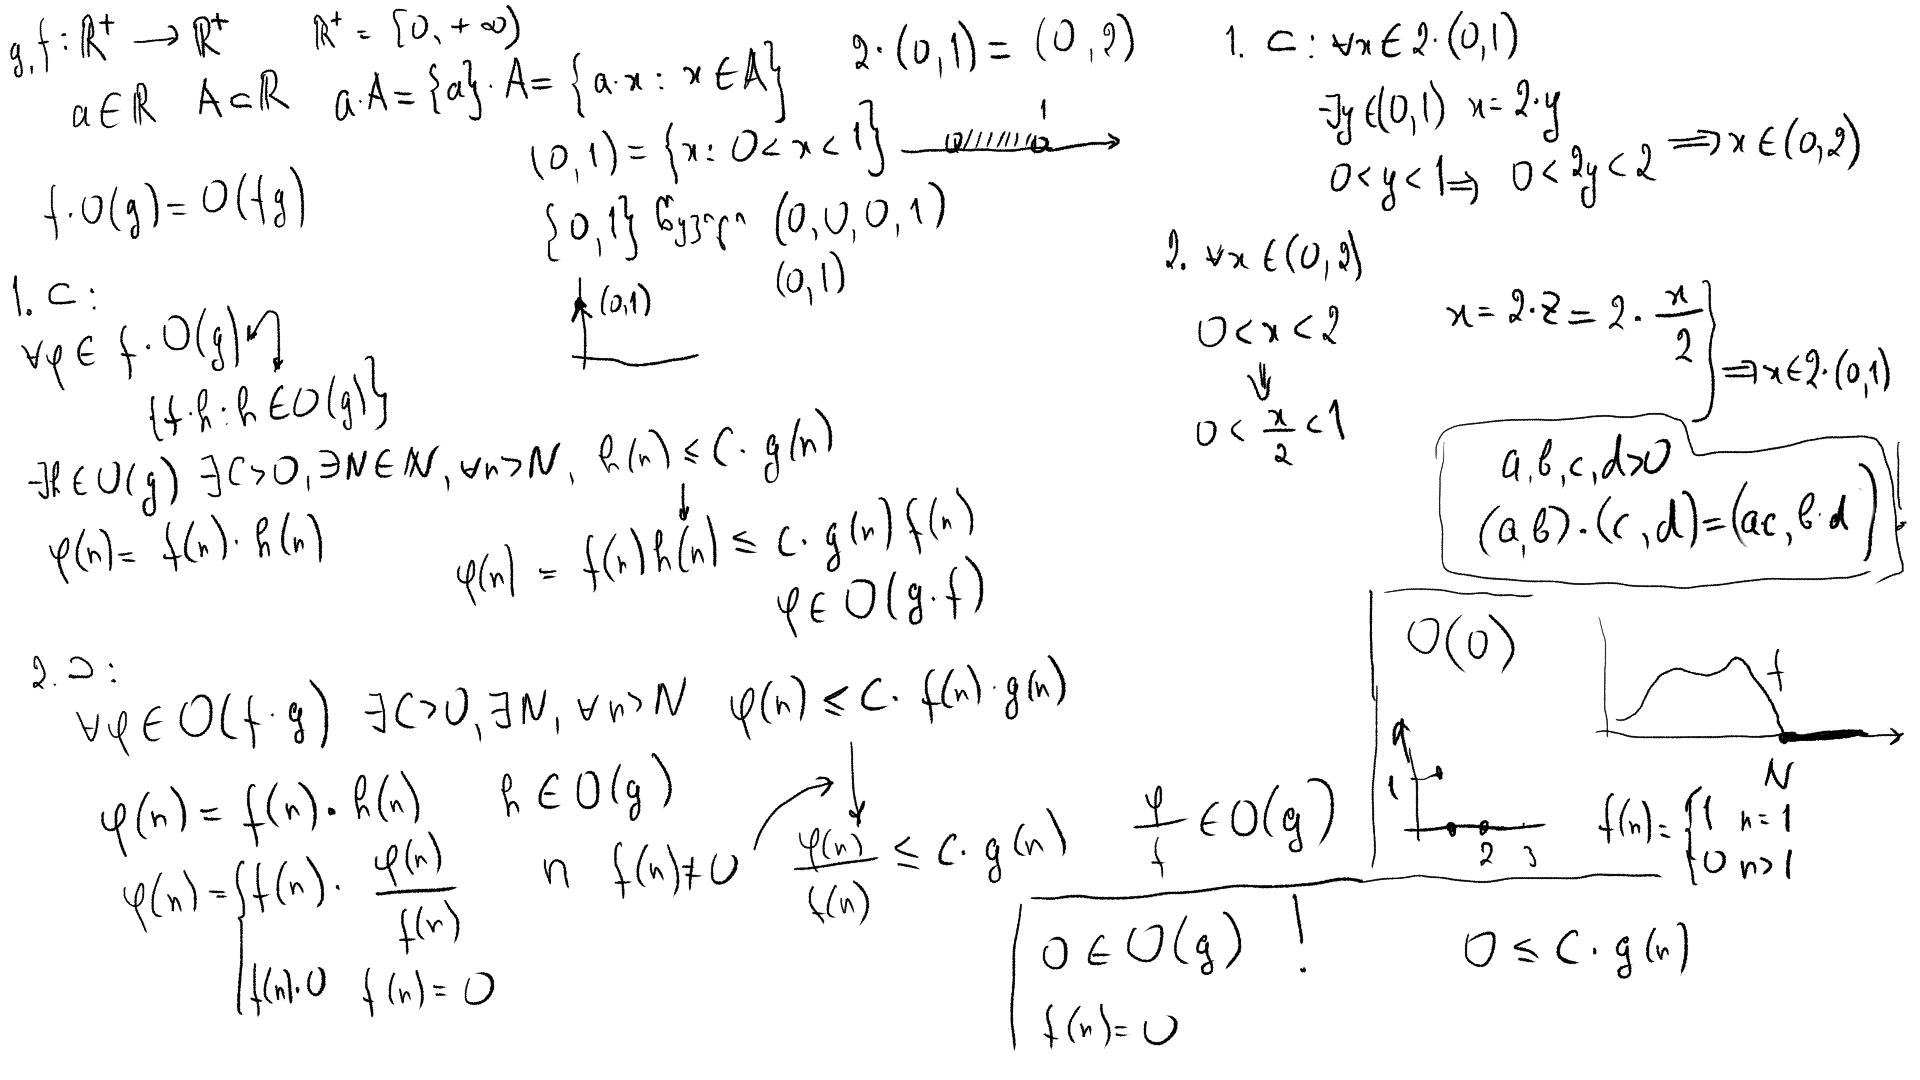 g, f : ℝ⁺ → ℝ⁺    ℝ⁺ = [0, +∞)
a ∈ ℝ   A ⊂ ℝ   a·A = {a}·A = {a·x : x ∈ A}
2·(0,1) = (0,2)
(0,1) = {x : 0 < x < 1}
1
{0,1}   (0,0,0,1)
(0,1)
(0,1)
f·O(g) = O(fg)
1. ⊂ :
∀φ ∈ f·O(g)
{f·h : h ∈ O(g)}
∃h ∈ O(g) ∃C>0, ∃N∈ℕ, ∀n>N, h(n) ≤ C·g(n)
φ(n) = f(n)·h(n)   φ(n) = f(n)h(n) ≤ C·g(n)f(n)
φ ∈ O(g·f)
2. ⊃ :
∀φ ∈ O(f·g) ∃C>0, ∃N, ∀n>N φ(n) ≤ C·f(n)·g(n)
φ(n) = f(n)·h(n)   h ∈ O(g)
φ(n) = { f(n)·φ(n)/f(n)   n   f(n)≠0   φ(n)/f(n) ≤ C·g(n)   φ/f ∈ O(g)
f(n)·0   f(n) = 0
1. ⊂ : ∀x ∈ 2·(0,1)
∃y ∈ (0,1) x = 2·y
0 < y < 1 ⇒ 0 < 2y < 2 ⇒ x ∈ (0,2)
2. ∀x ∈ (0,2)
0 < x < 2   x = 2·z = 2·x/2
⇓
0 < x/2 < 1   } ⇒ x ∈ 2·(0,1)
a,b,c,d>0
(a,b)·(c,d) = (ac, b·d)
O(0)
f
N
1
2 3
f(n) = { 1 n=1
0 n>1
0 ∈ O(g) !   0 ≤ C·g(n)
f(n) = 0